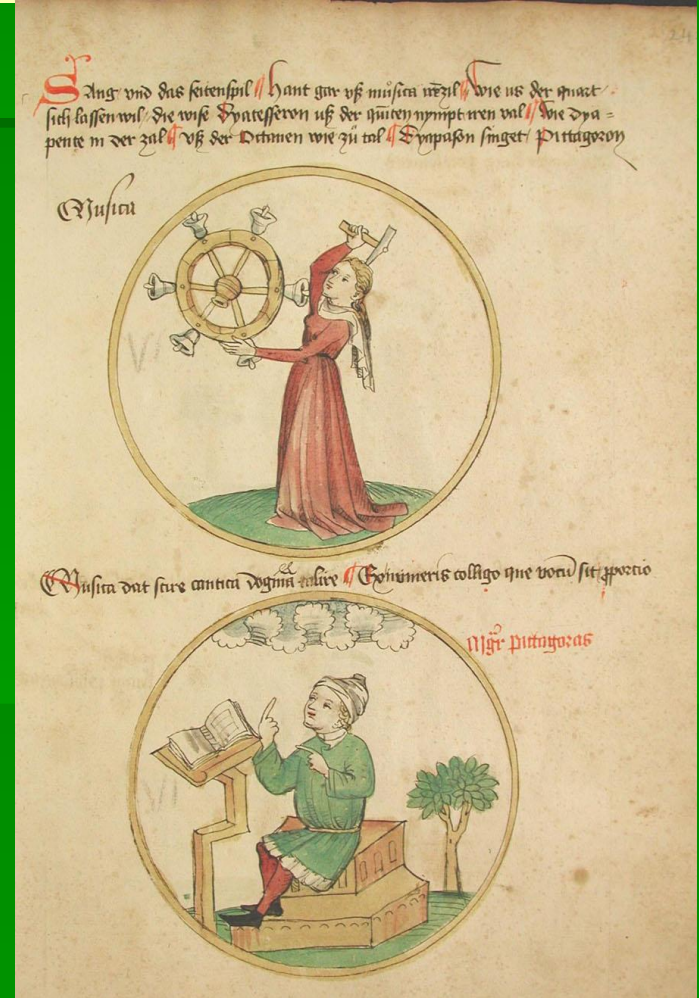 Sang vnd das seitenspil Hant gar vß můsica zil Wie us der quart
sich lassen wil die wise Dyatesseron uß der quinten nympt iren val Wie dya=
pente in der zal vß der Octauen wie zů tal Dyapason singet Pittagoron
Musica
Musica dat scire cantica dogma colligo que vocū sit ꝓporcio
Mgr pittagoras
VI
VI
24